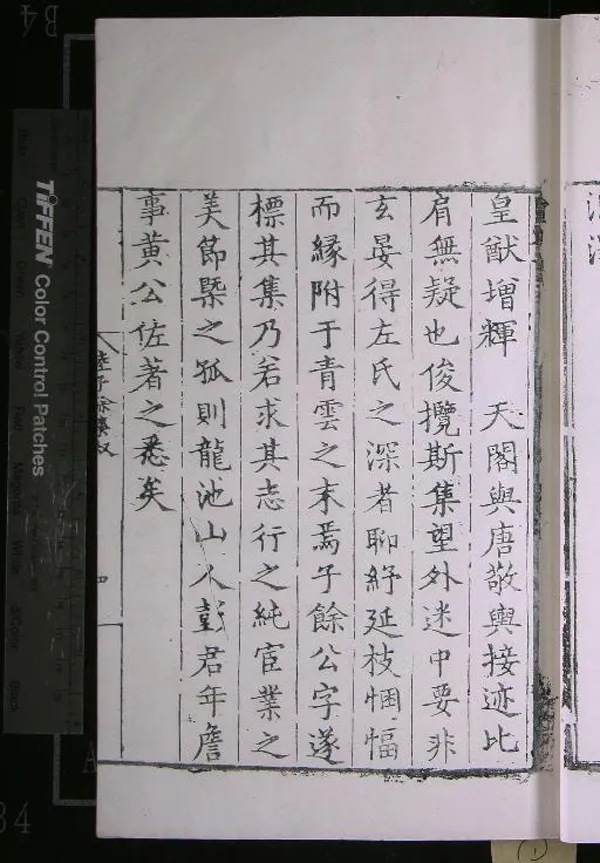 皇猷增輝　天閣與唐敬輿接迹比
肩無疑也俊攬斯集望外迷中要非
玄晏得左氏之深者聊紓延枝悃愊
而緣附于青雲之末焉子餘公字遂
標其集乃若求其志行之純宦業之
美節槩之孤則龍池山人彭君年詹
事黃公佐著之悉矣
陸子餘集叙
四
TIFFEN Color Control Patches